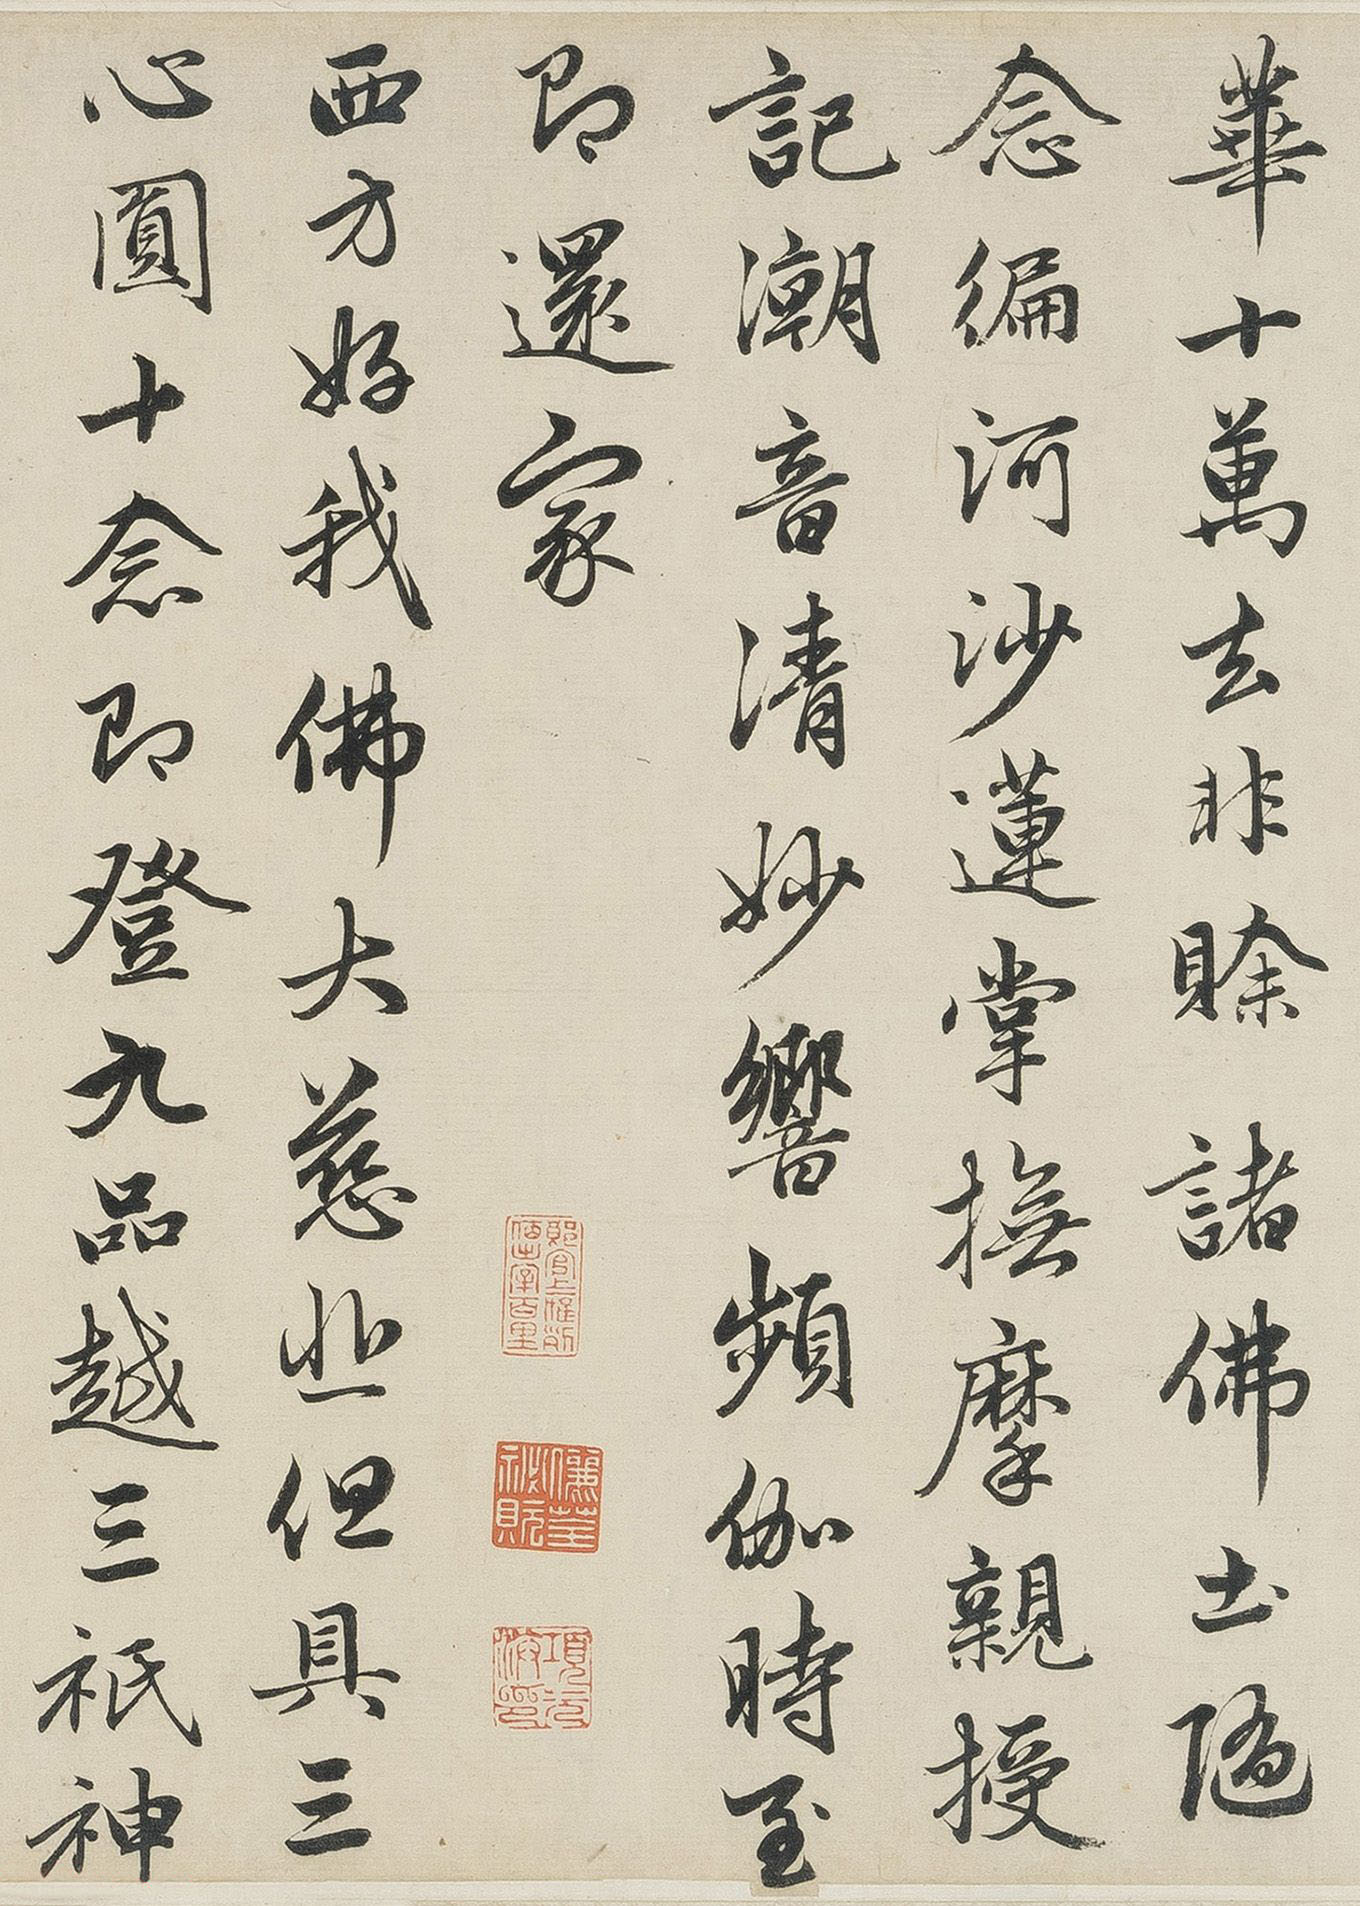 華十萬去非賒諸佛土隨
念徧河沙蓮掌撫摩親授
記潮音清妙響頻伽時至
即還家
西方好我佛大慈悲但具三
心圓十念即登九品越三祇神
項元